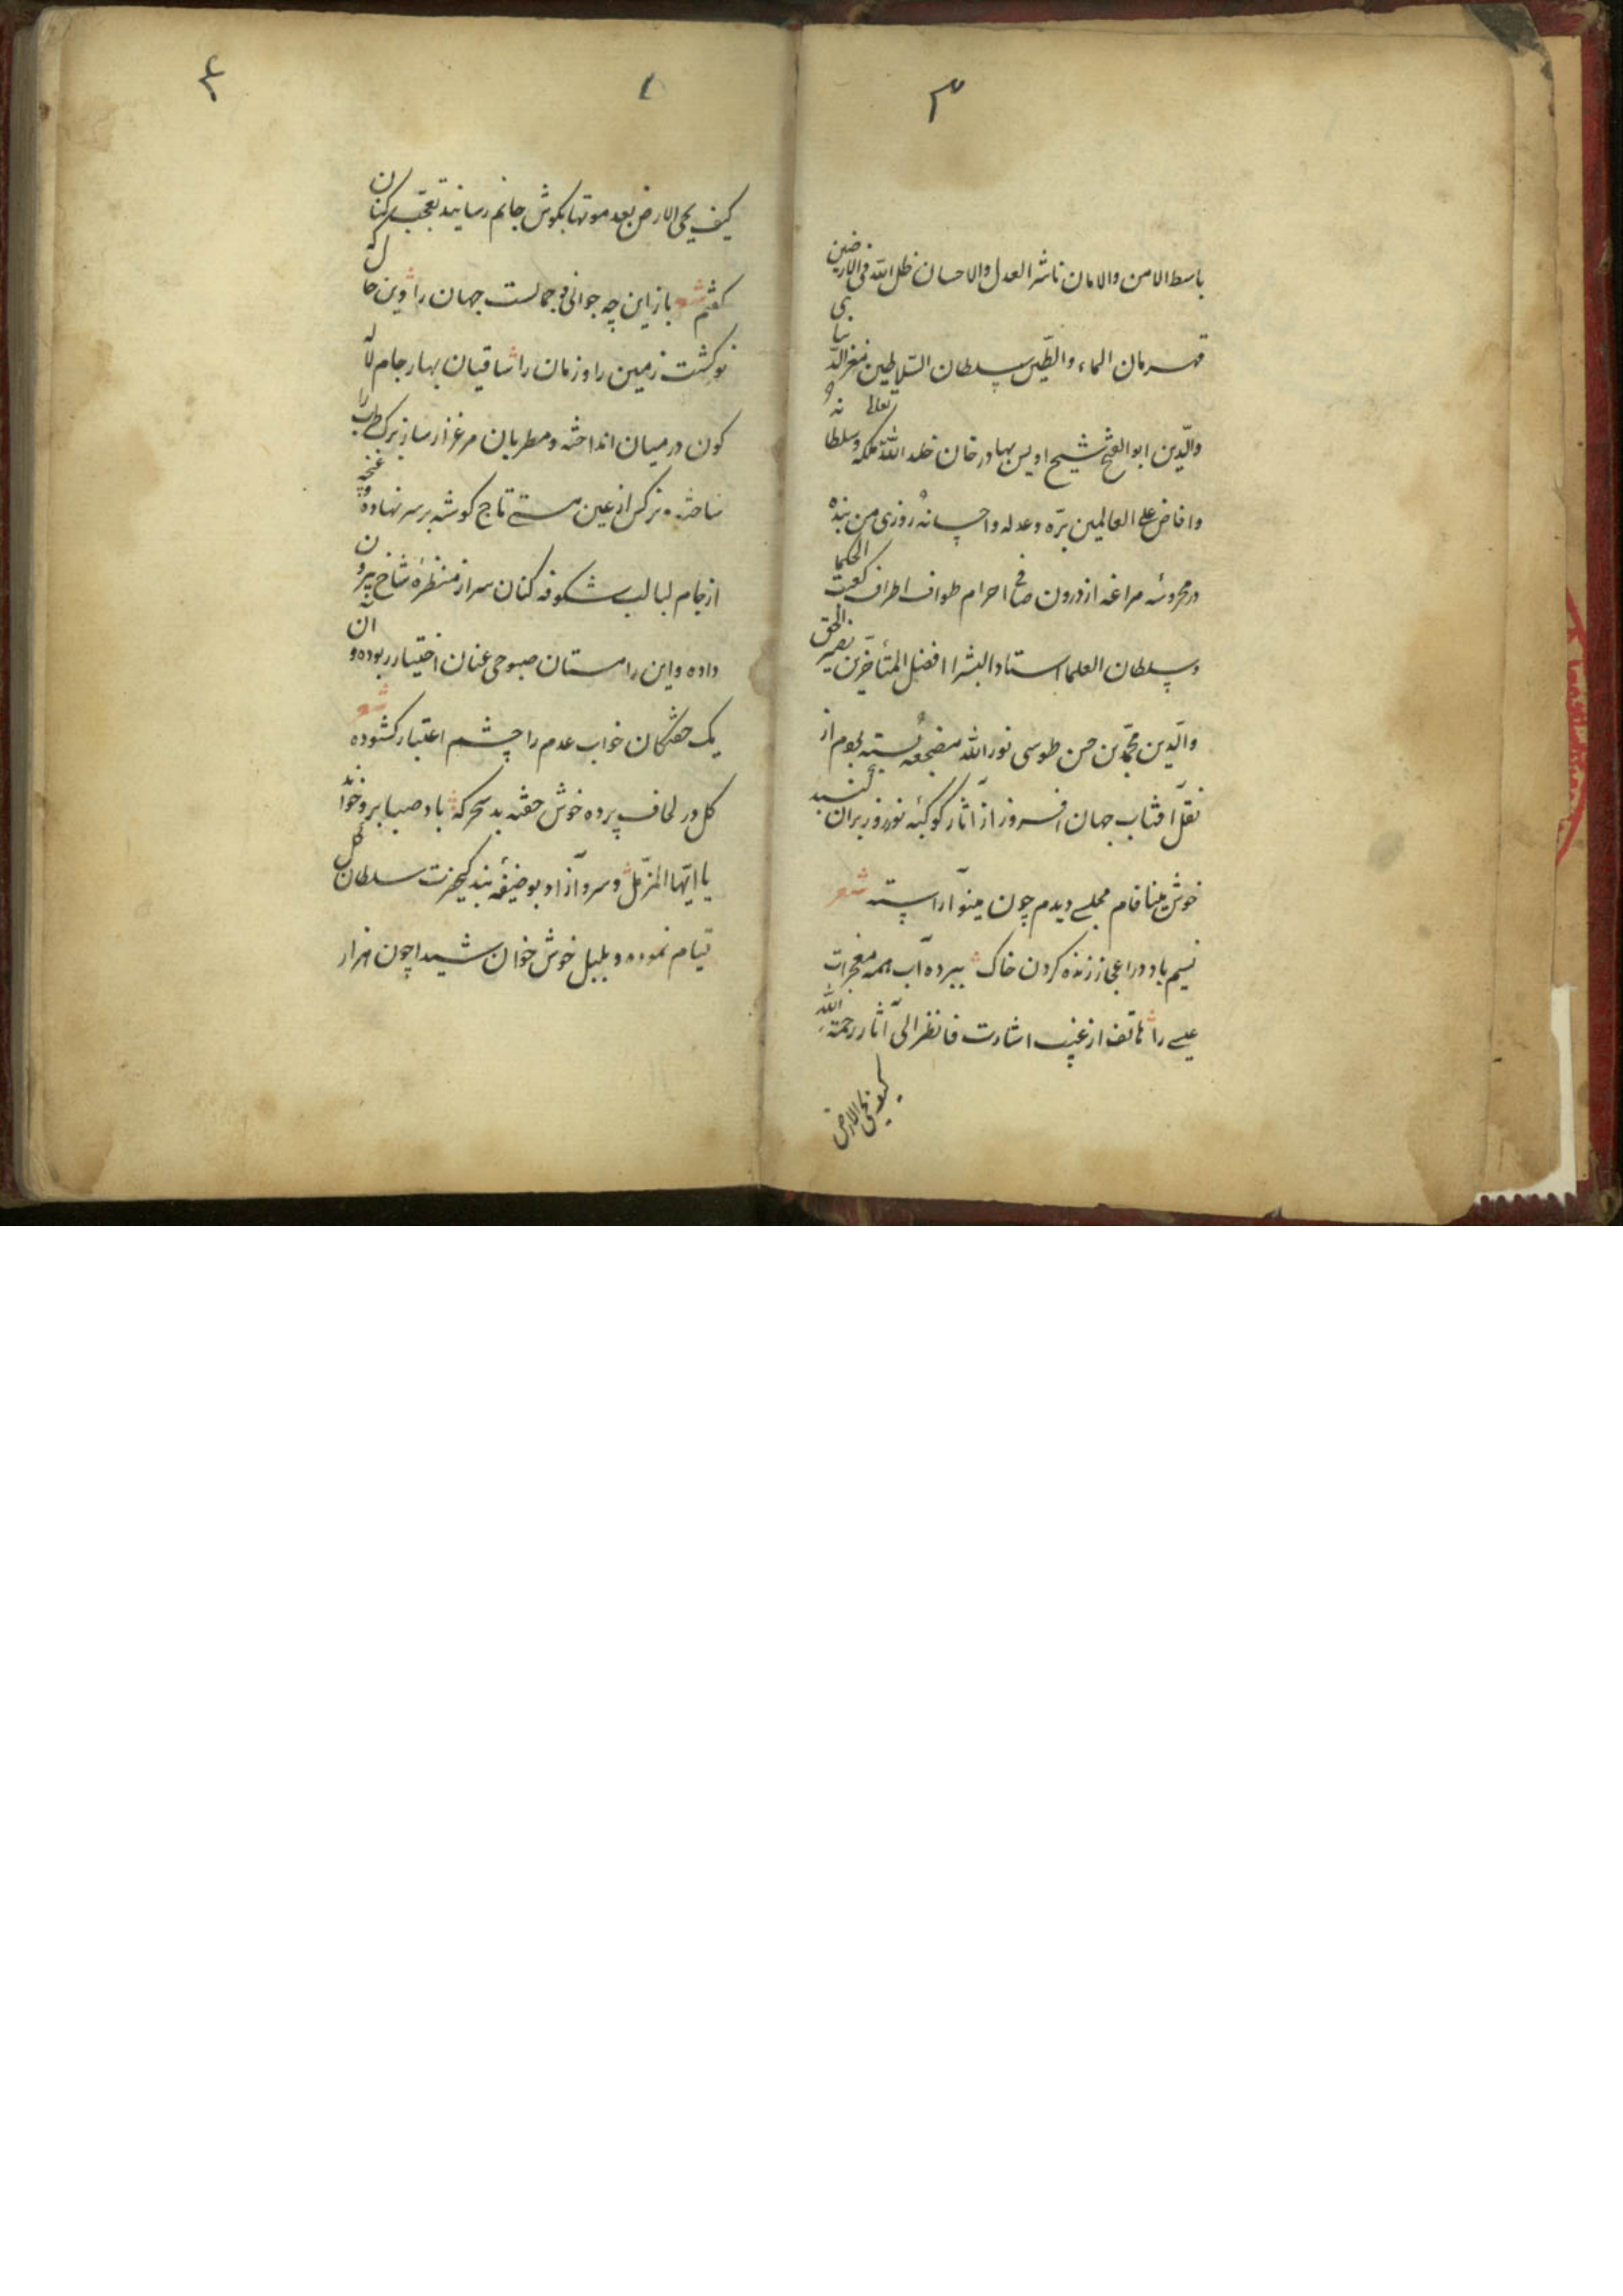 ۳
باسط الامن والامان ناشر العدل والاحسان ظل الله فی الارضین
قهرمان الماء والطین سلطان السلاطین معز الدنیا
والدین ابو الفتح شیخ اویس بهادر خان خلد الله تعالی ملکه و سلطانه
وافاض علی العالمین بره وعدله واحسانه روزی من بنده
در محروسه مراغه از درون صافی احرام طواف اطراف کعبه الحکما
وسلطان العلما استاد البشر افضل المتأخرین نصیر الحق
والدین محمد بن حسن طوسی نور الله مضجعه بسته بودم از
نقل آفتاب جهان افروز از آثار کوکبه نوروز بران کنبد
خوش مینا فام مجلسی دیدم چون مینو آراسته شعر
نسیم باد در اعجاز زنده کردن خاک ببرده آب همه معجزات
عیسی را هاتف از غیب اشارت فانظر الی آثار رحمة الله
کیف یحی الارض
۴
۱
کیف یحی الارض بعد موتها بکوش جانم رسانید تعجب کنان
کفتم شعر باز این چه جوانی و جمالست جهان را وین حال که
نو کشت زمین را و زمان را ساقیان بهار جام لاله
کون در میان انداخته و مطربان مرغزار ساز برک طرب را
ساخته و نرکس از عین مستی تاج کوشه بر سر نهاده و غنچه
از جام لبالب شکوفه کنان سر از منظره شاخ بیرون
داده و این را مستان صبوحی عنان اختیار ربوده و آن
یک خفتکان خواب عدم را چشم اعتبار کشوده شعر
کل در لحاف پرده خوش خفته بد سحرکه باد صبا برو خواند
یا ایها المزمل و سرو آزاد بوظیفه بندکی حضرت سلطان کل
قیام نموده و بلبل خوش خوان شیدا چون هزار